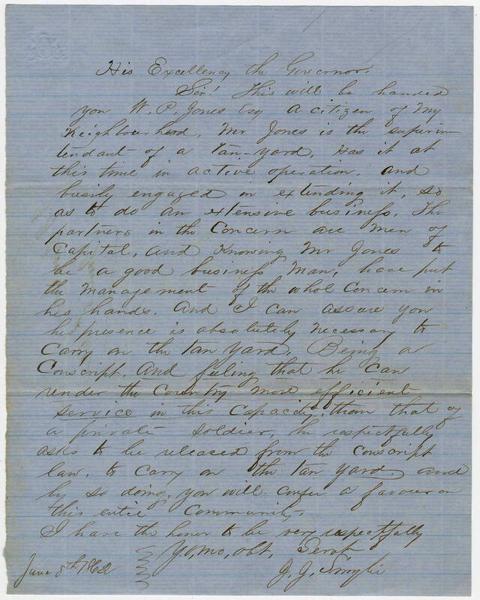 His Excellency the Governor.
Sir! This will be handed
you W. P. Jones Esq a citizen of my
Neighbourhood. Mr Jones is the superin-
tendant of a Tan-yard, has it at
this time in active operation. and
busily engaged in extending it, so
as to do an extensive business. The
partners in the Concern are men of
Capital, and Knowing Mr Jones to
be a good business man, have put
the management of the whol Concern in
his hands. And I can assure you
his presence is absolutely necessary to
Carry on the tan yard. Being a
Conscript, and feeling that he Can
render the Country more efficient
service in this Capacity, than that of
a private soldier, he respectfully
asks to be released from the conscript
law, to Carry on the tan yard and
by so doing, you will confer a favour on
this entire Community.
I have the honor to be very respectfully
Yo, mo, obt, Servt
June 5th 1862 J. J.